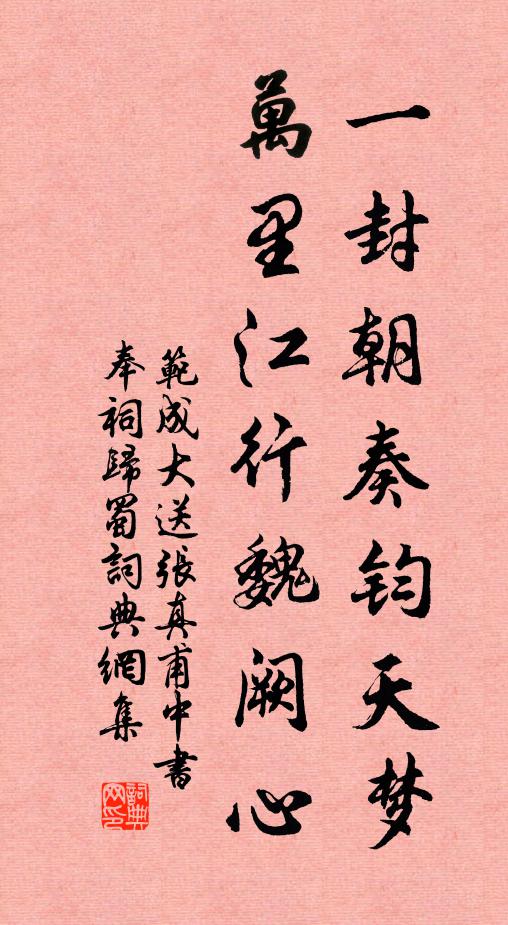 一封朝奏钧天梦
萬里江行魏阙心
範成大送張真甫中書
奉祠歸蜀詞典網集
詞典
网印